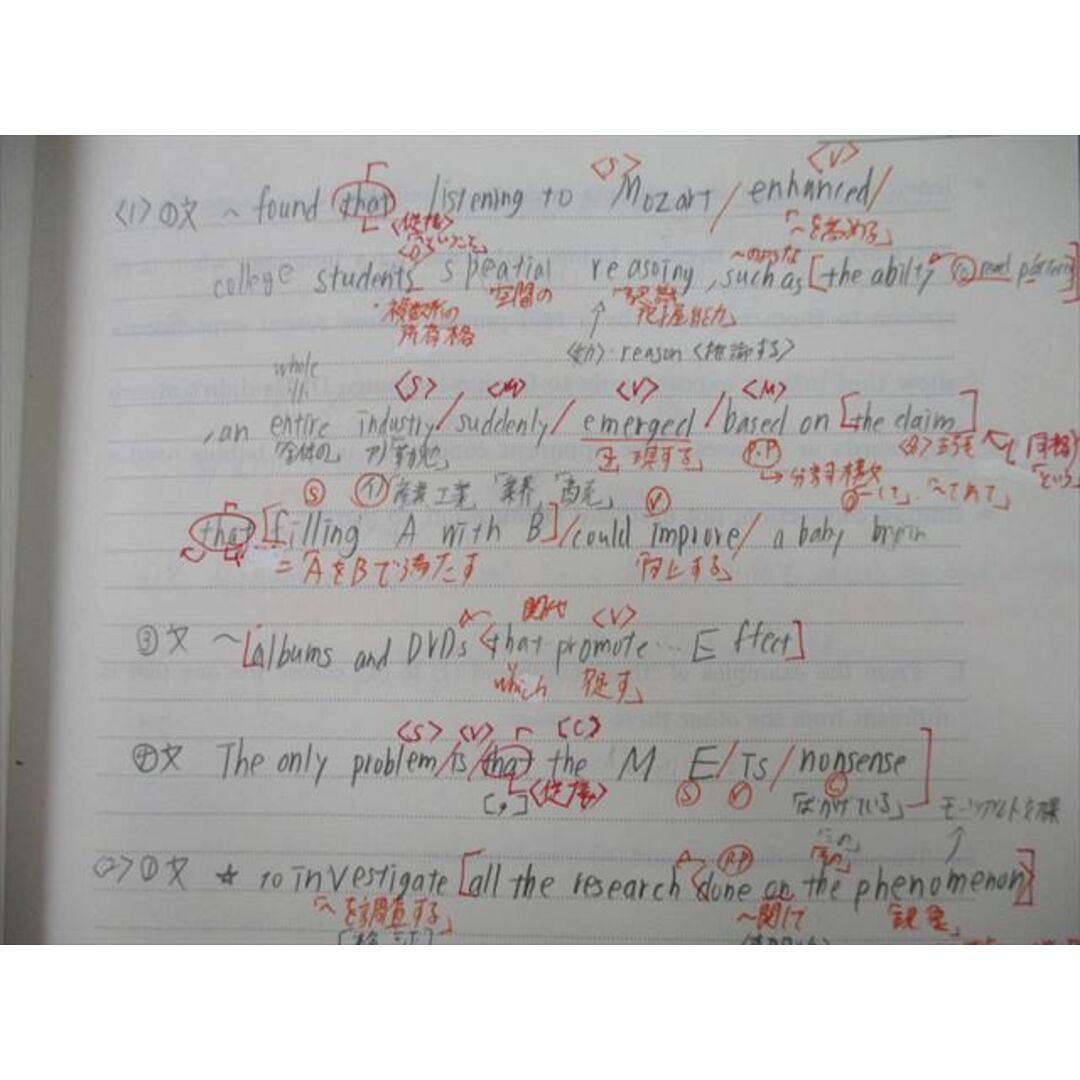 <S> <V>
<1>①文 ~ found that listening to Mozart / enhanced /
<従接> 「~を高める」
<O>「~ということ」 ~のような
college students' speatial reasoing , such as [the ability to read
・複数形の 空間の 把握能力」
所有格
<動>・reason <推論する>
whole
<S> <M> <V> <M>
, an entire industry / suddenly / emerged / based on [the claim]
「全体の」 出現する」 P.P 同格
→分詞構文 「~して」、「~であって」 「という
S 産業工業、「業界」 V
that [filling A with B] / could improve / a baby brain
=「AをBで満たす 「向上する」
関代 <V>
③文 ~[albums and DVDs <that promote … E ffect]
which 「促す」
<S> <V> [C]
④文 The only problem / is / that the M E / is / nonsense]
[,] <従接> S V C
「ばかげている」 モーツアルト効果
P.P
<2>①文 ☆ to investigate [all the research <done on the phenomenon>]
「~を調査する」 ~関して